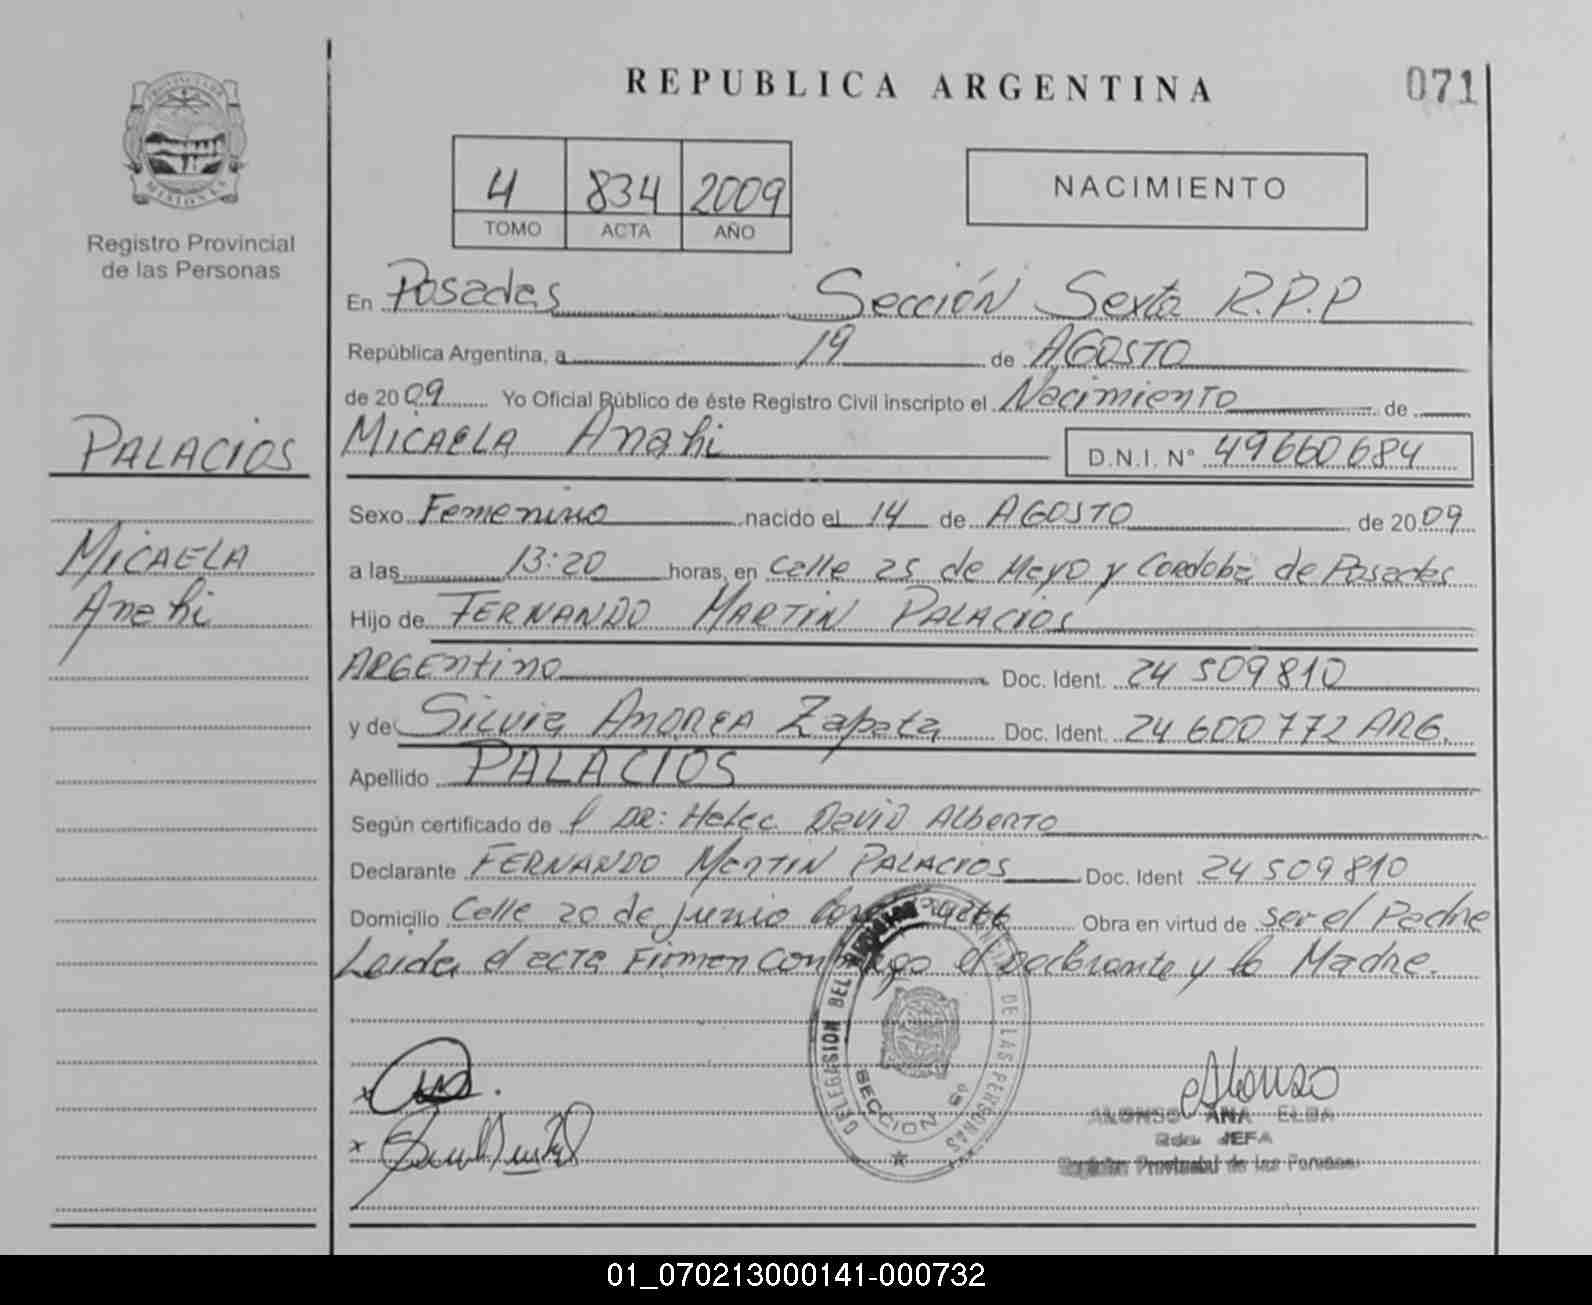 REPUBLICA ARGENTINA
071
PROVINCIA DE
MISIONES
Registro Provincial
de las Personas
4 834 2009
TOMO ACTA AÑO
NACIMIENTO
En Posadas Sección Sexta R.P.P
República Argentina, a 19 de AGOSTO
de 2009 Yo Oficial Público de éste Registro Civil inscripto el Nacimiento de
MICAELA Anahi D.N.I. N° 49660684
PALACIOS
MICAELA
Anahi
Sexo Femenino nacido el 14 de AGOSTO de 2009
a las 13:20 horas, en calle 25 de Mayo y Cordoba de Posadas
Hijo de FERNANDO MARTIN PALACIOS
ARGENtino Doc. Ident. 24 509810
y de Silvia ANDREA Zapata Doc. Ident. 24 600 772 ARG.
Apellido PALACIOS
Según certificado de DR: David Alberto
Declarante FERNANDO MARTIN PALACIOS Doc. Ident 24 509810
Domicilio Calle 20 de junio Obra en virtud de ser el Padre
Leida el acta Firman conmigo el Declarante y la Madre.
DELEGASION DEL REGISTRO DE LAS PERSONAS
SECCION 6°
Alonso
ALONSO ANA ELBA
JEFA
Registro Provincial de las Personas
01_070213000141-000732